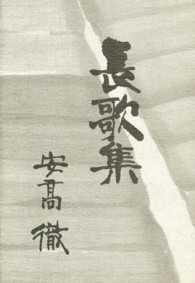 長歌集
安髙徹